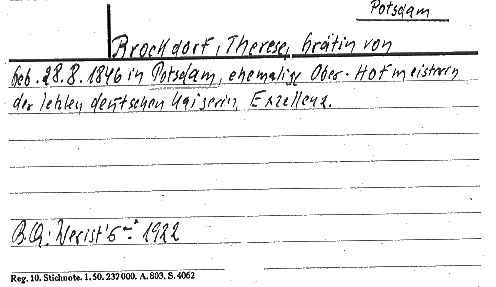 Potsdam
Brockdorf, Therese, Gräfin von
geb. 28.8.1846 in Potsdam, ehemalige Ober-Hofmeisterin
der letzten deutschen Kaiserin, Exzellenz.
B.Q: Werist's 1922
Reg. 10. Stichnote. 1. 50. 237000. A. 803. S. 4062